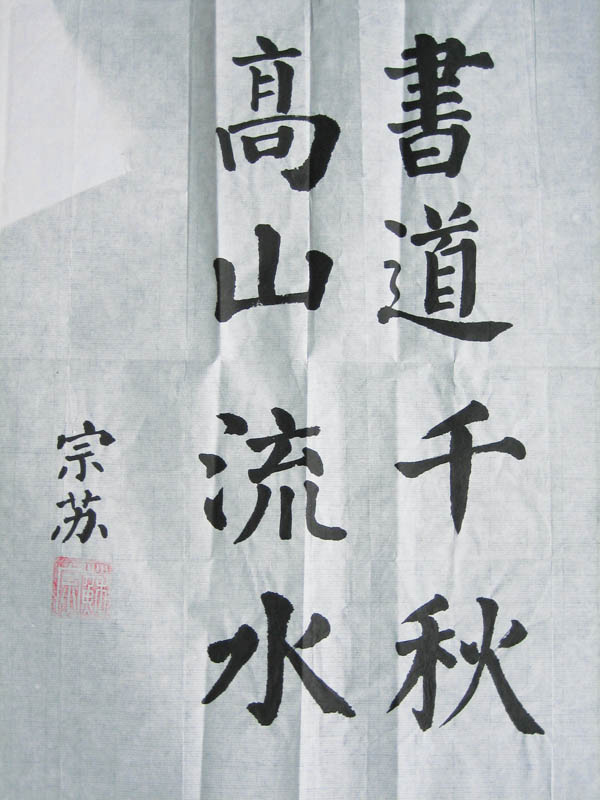 書道千秋
髙山流水
宗苏